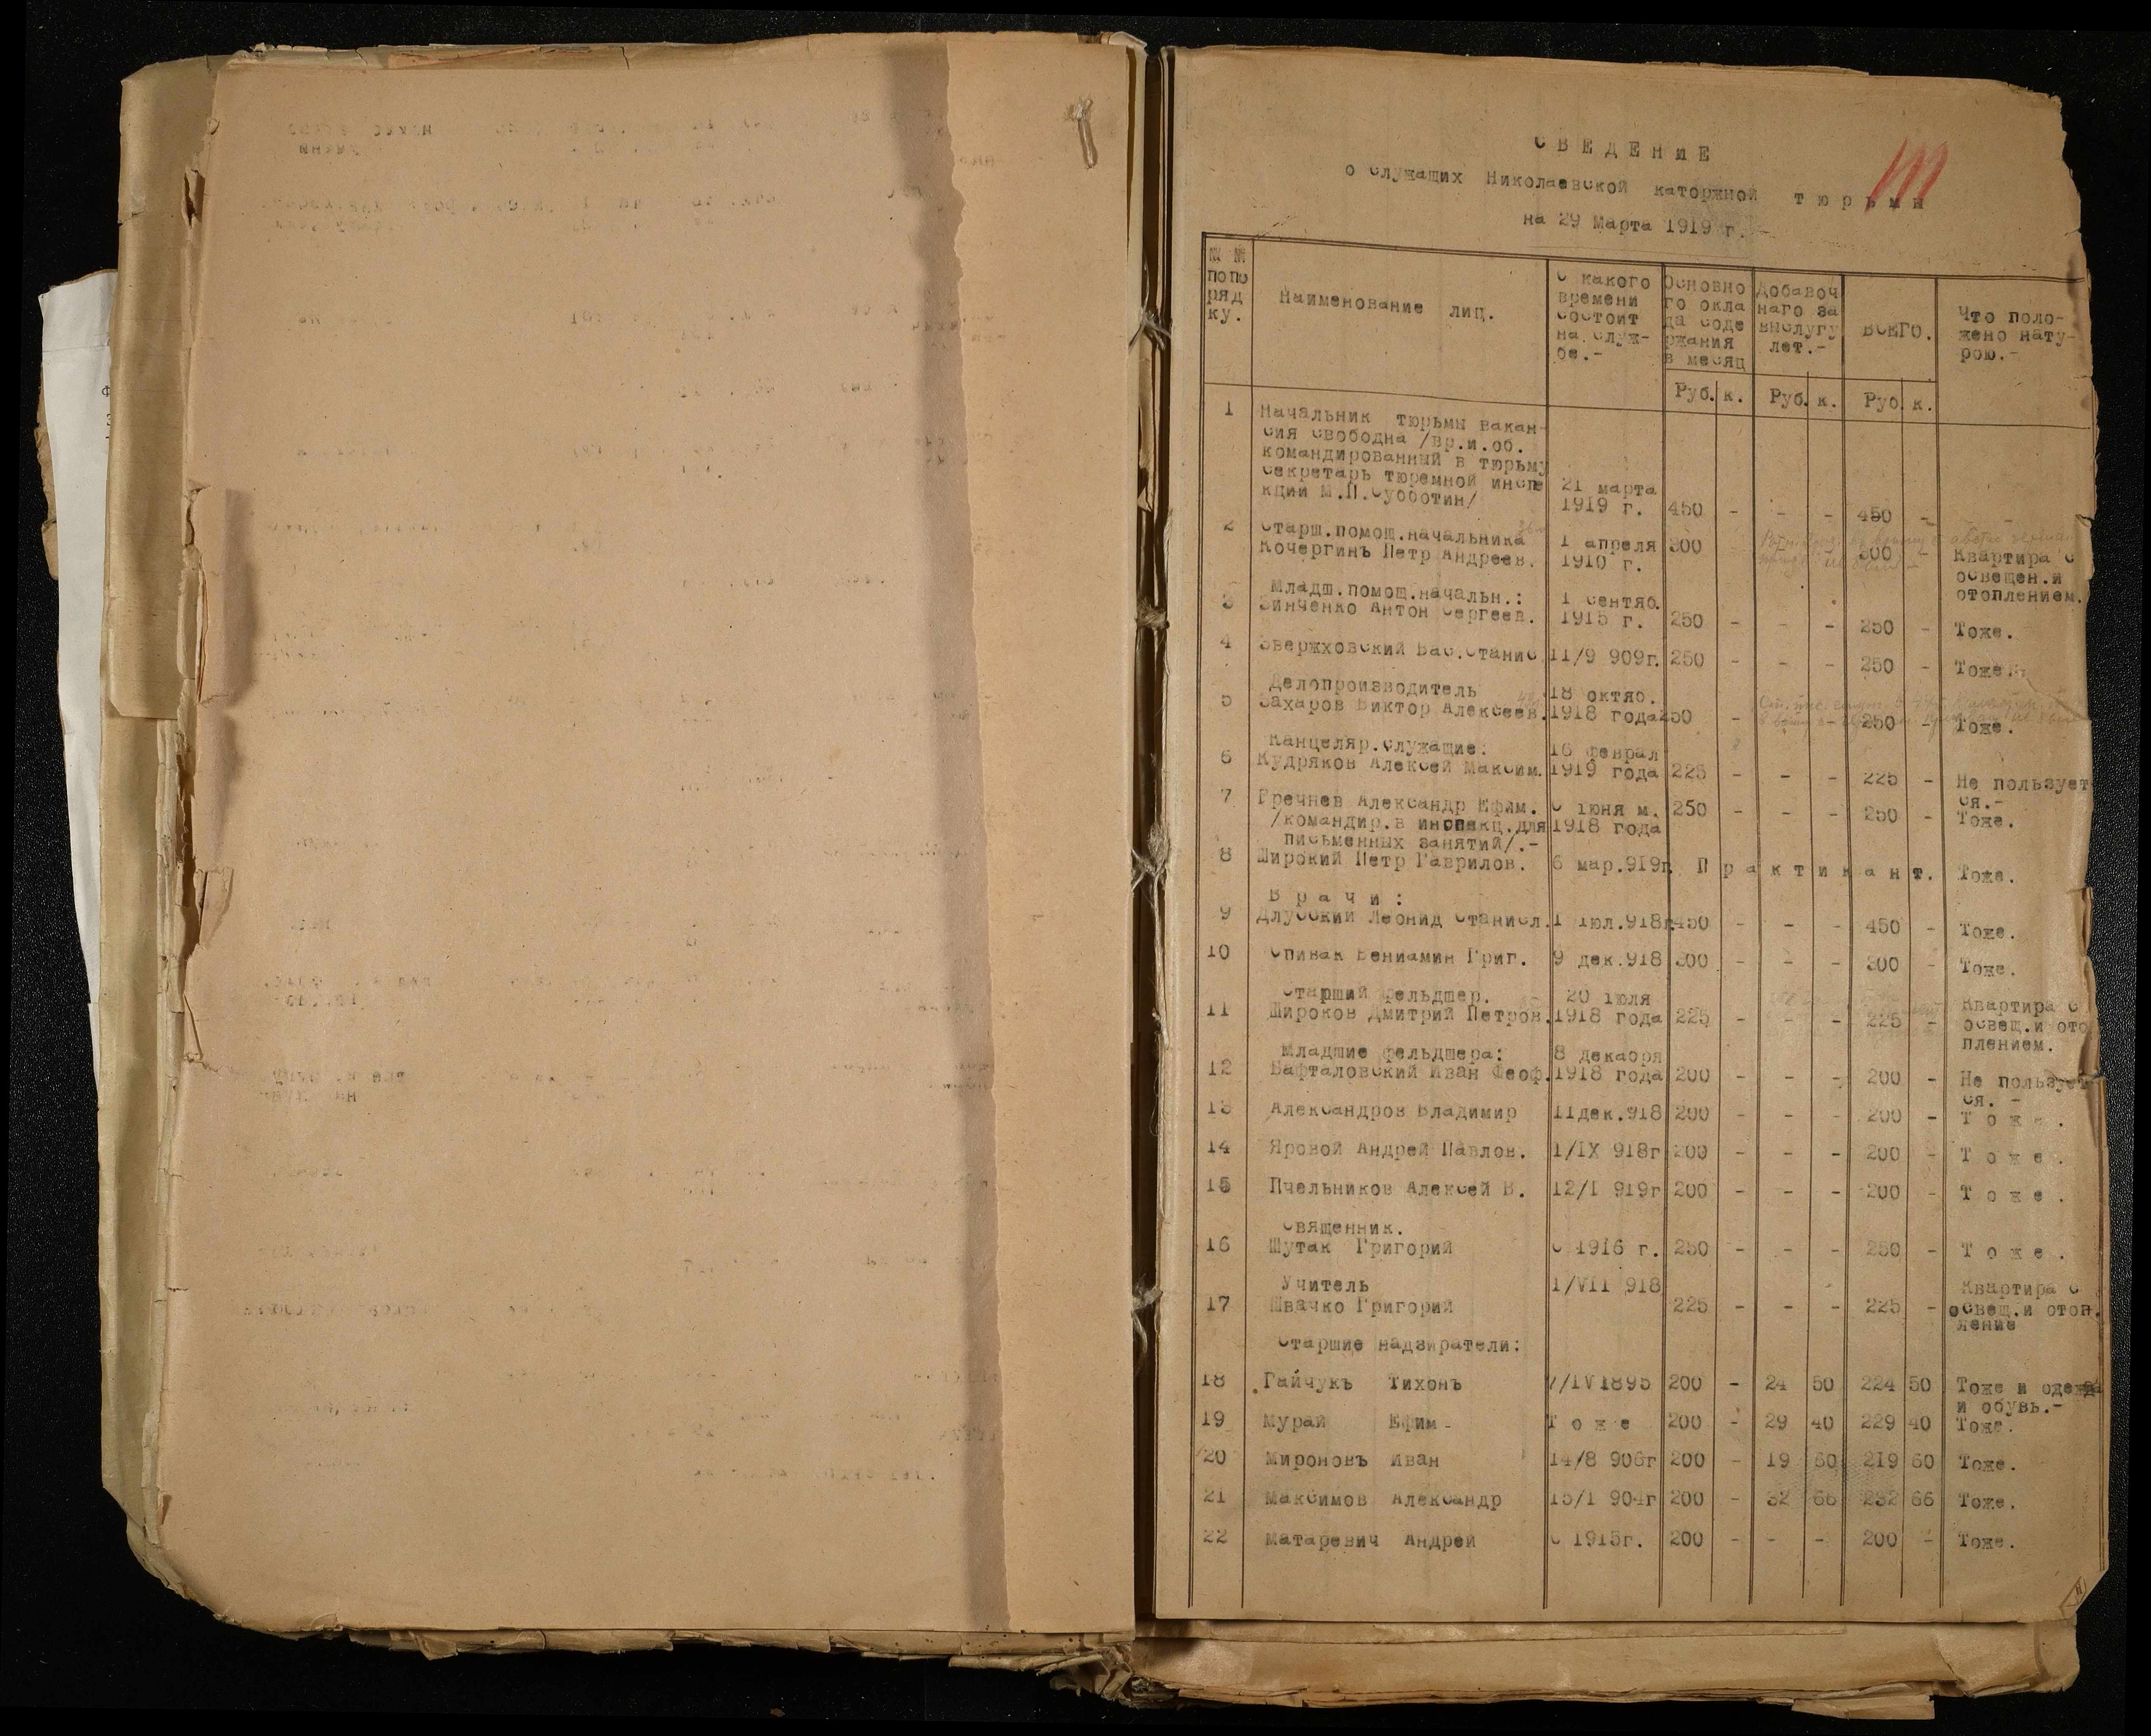 СВЕДЕНИЕ
о служащих Николаевской каторжной тюрьмы
на 29 марта 1919 г. -
№ № по по ряд ку. | Наименование лиц. | С какого времени состоит на служ-бе.- | Основно го окла да соде ржания в месяц | Добавоч наго за выслугу лет.- | ВСЕГО. | Что поло-жено нату-рою.-
Руб. к. | Руб. к. | Руб. к.
1 Начальник тюрьмы вакан-
сия свободна /вр.и.об.
командированный в тюрьму
секретарь тюремной инспе 21 марта
кции М.П.Субботин/ 1919 г. 450 - - - 450 -
2 Старш.помощ.начальника 1 апреля 300 300 - Квартира с
Кочергинъ Петр Андреев. 1910 г. освещен.и
отоплением.
Младш.помощ.начальн.: 1 сентяб.
3 Зинченко Антон Сергеев. 1915 г. 250 - - - 250 - Тоже.
4 Звержховский Вас.Станис. 11/9 909г. 250 - - - 250 - Тоже.
Делопроизводитель 18 октяб.
5 Захаров Виктор Алексеев. 1918 года 250 - - 250 - Тоже.
Канцеляр.служащие: 16 феврал
6 Кудряков Алексей Максим. 1919 года 225 - - - 225 - Не пользует
ся.-
7 Гречнев Александр Ефим. С июня м. 250 - - - 250 - Тоже.
/командир.в инспекц.для 1918 года
письменных занятий/.-
8 Широкий Петр Гаврилов. 6 мар.919г. Практикант. Тоже.
Врачи:
9 Длусский Леонид Станисл. 1 юл.918г. 450 - - - 450 - Тоже.
10 Спивак Вениамин Григ. 9 дек.918 300 - - - 300 - Тоже.
Старший фельдшер. 20 июля Квартира с
11 Широков Дмитрий Петров. 1918 года 225 - - - 225 - освещ.и ото
плением.
Младшие фельдшера: 8 декабря
12 Бафталовский Иван Феоф. 1918 года 200 - - - 200 - Не пользует
ся. -
13 Александров Владимир 11дек.918 200 - - - 200 - Тоже.
14 Яровой Андрей Павлов. 1/IX 918г 200 - - - 200 - Тоже.
15 Пчельников Алексей В. 12/I 919г 200 - - - 200 - Тоже.
Священник.
16 Шутак Григорий С 1916 г. 250 - - - 250 - Тоже.
Учитель 1/VII 918 Квартира с
17 Швачко Григорий 225 - - - 225 - освещ.и отоп.
ление
Старшие надзиратели:
18 Гайчукъ Тихонъ 7/IV1895 200 - 24 50 224 50 Тоже и одежда
и обувь.-
19 Мурай Ефим- Тоже 200 - 29 40 229 40 Тоже.
20 Мироновъ Иван 14/8 906г 200 - 19 60 219 60 Тоже.
21 Максимов Александр 15/1 904г 200 - 32 66 232 66 Тоже.
22 Матаревич Андрей С 1915г. 200 - - - 200 - Тоже.